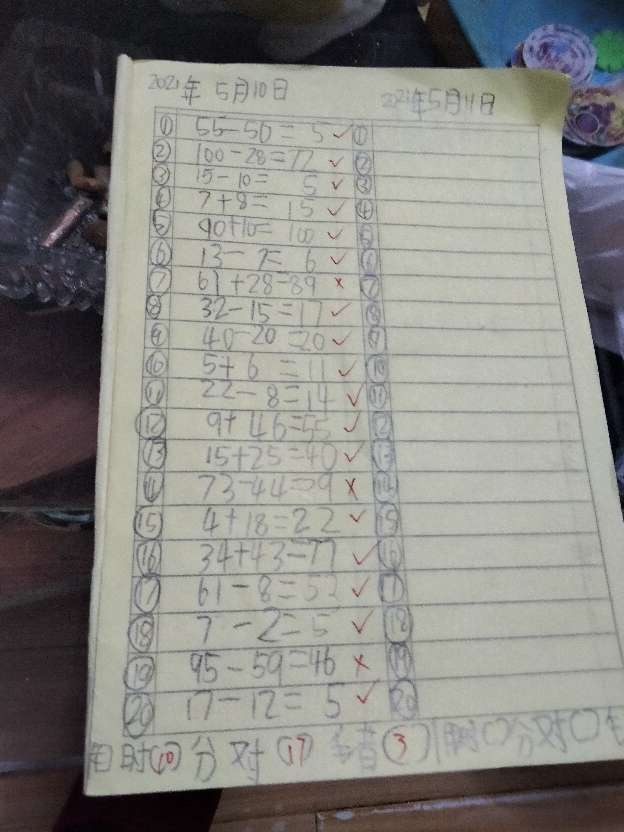 2021年 5月10日 2021年5月11日
① 55-50= 5 ✓ ①
② 100-28=72 ✓ ②
③ 15-10= 5 ✓ ③
④ 7+8= 15 ✓ ④
⑤ 90+10= 100 ✓ ⑤
⑥ 13-7= 6 ✓ ⑥
⑦ 61+28=89 × ⑦
⑧ 32-15=17 ✓ ⑧
⑨ 40-20=20 ✓ ⑨
⑩ 5+6 =11 ✓ ⑩
⑪ 22-8=14 ✓ ⑪
⑫ 9+46=55 ✓ ⑫
⑬ 15+25=40 ✓ ⑬
⑭ 73-44=9 × ⑭
⑮ 4+18=22 ✓ ⑮
⑯ 34+43=77 ✓ ⑯
⑰ 61-8=53 ✓ ⑰
⑱ 7-2=5 ✓ ⑱
⑲ 95-59=46 × ⑲
⑳ 17-12= 5 ✓ ⑳
用时⑩分 对⑰ 错③ 用时〇分对〇